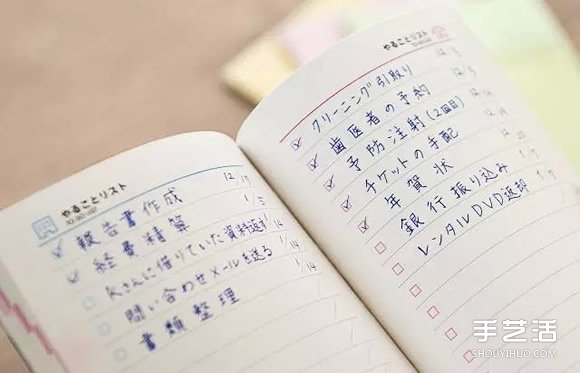 やることリスト
TO DO LIST
報告書作成 12/19
経費精算 1/5
Kさんに借りていた資料返す
問い合わせメールを送る 1/14
書類整理
やることリスト
クリーニング引取り 12/5
歯医者の予約
予防注射(2回目)
チケットの手配
年賀状
銀行振り込み 1/7
レンタルDVD返却
手艺活
SHOUYIHUO.COM